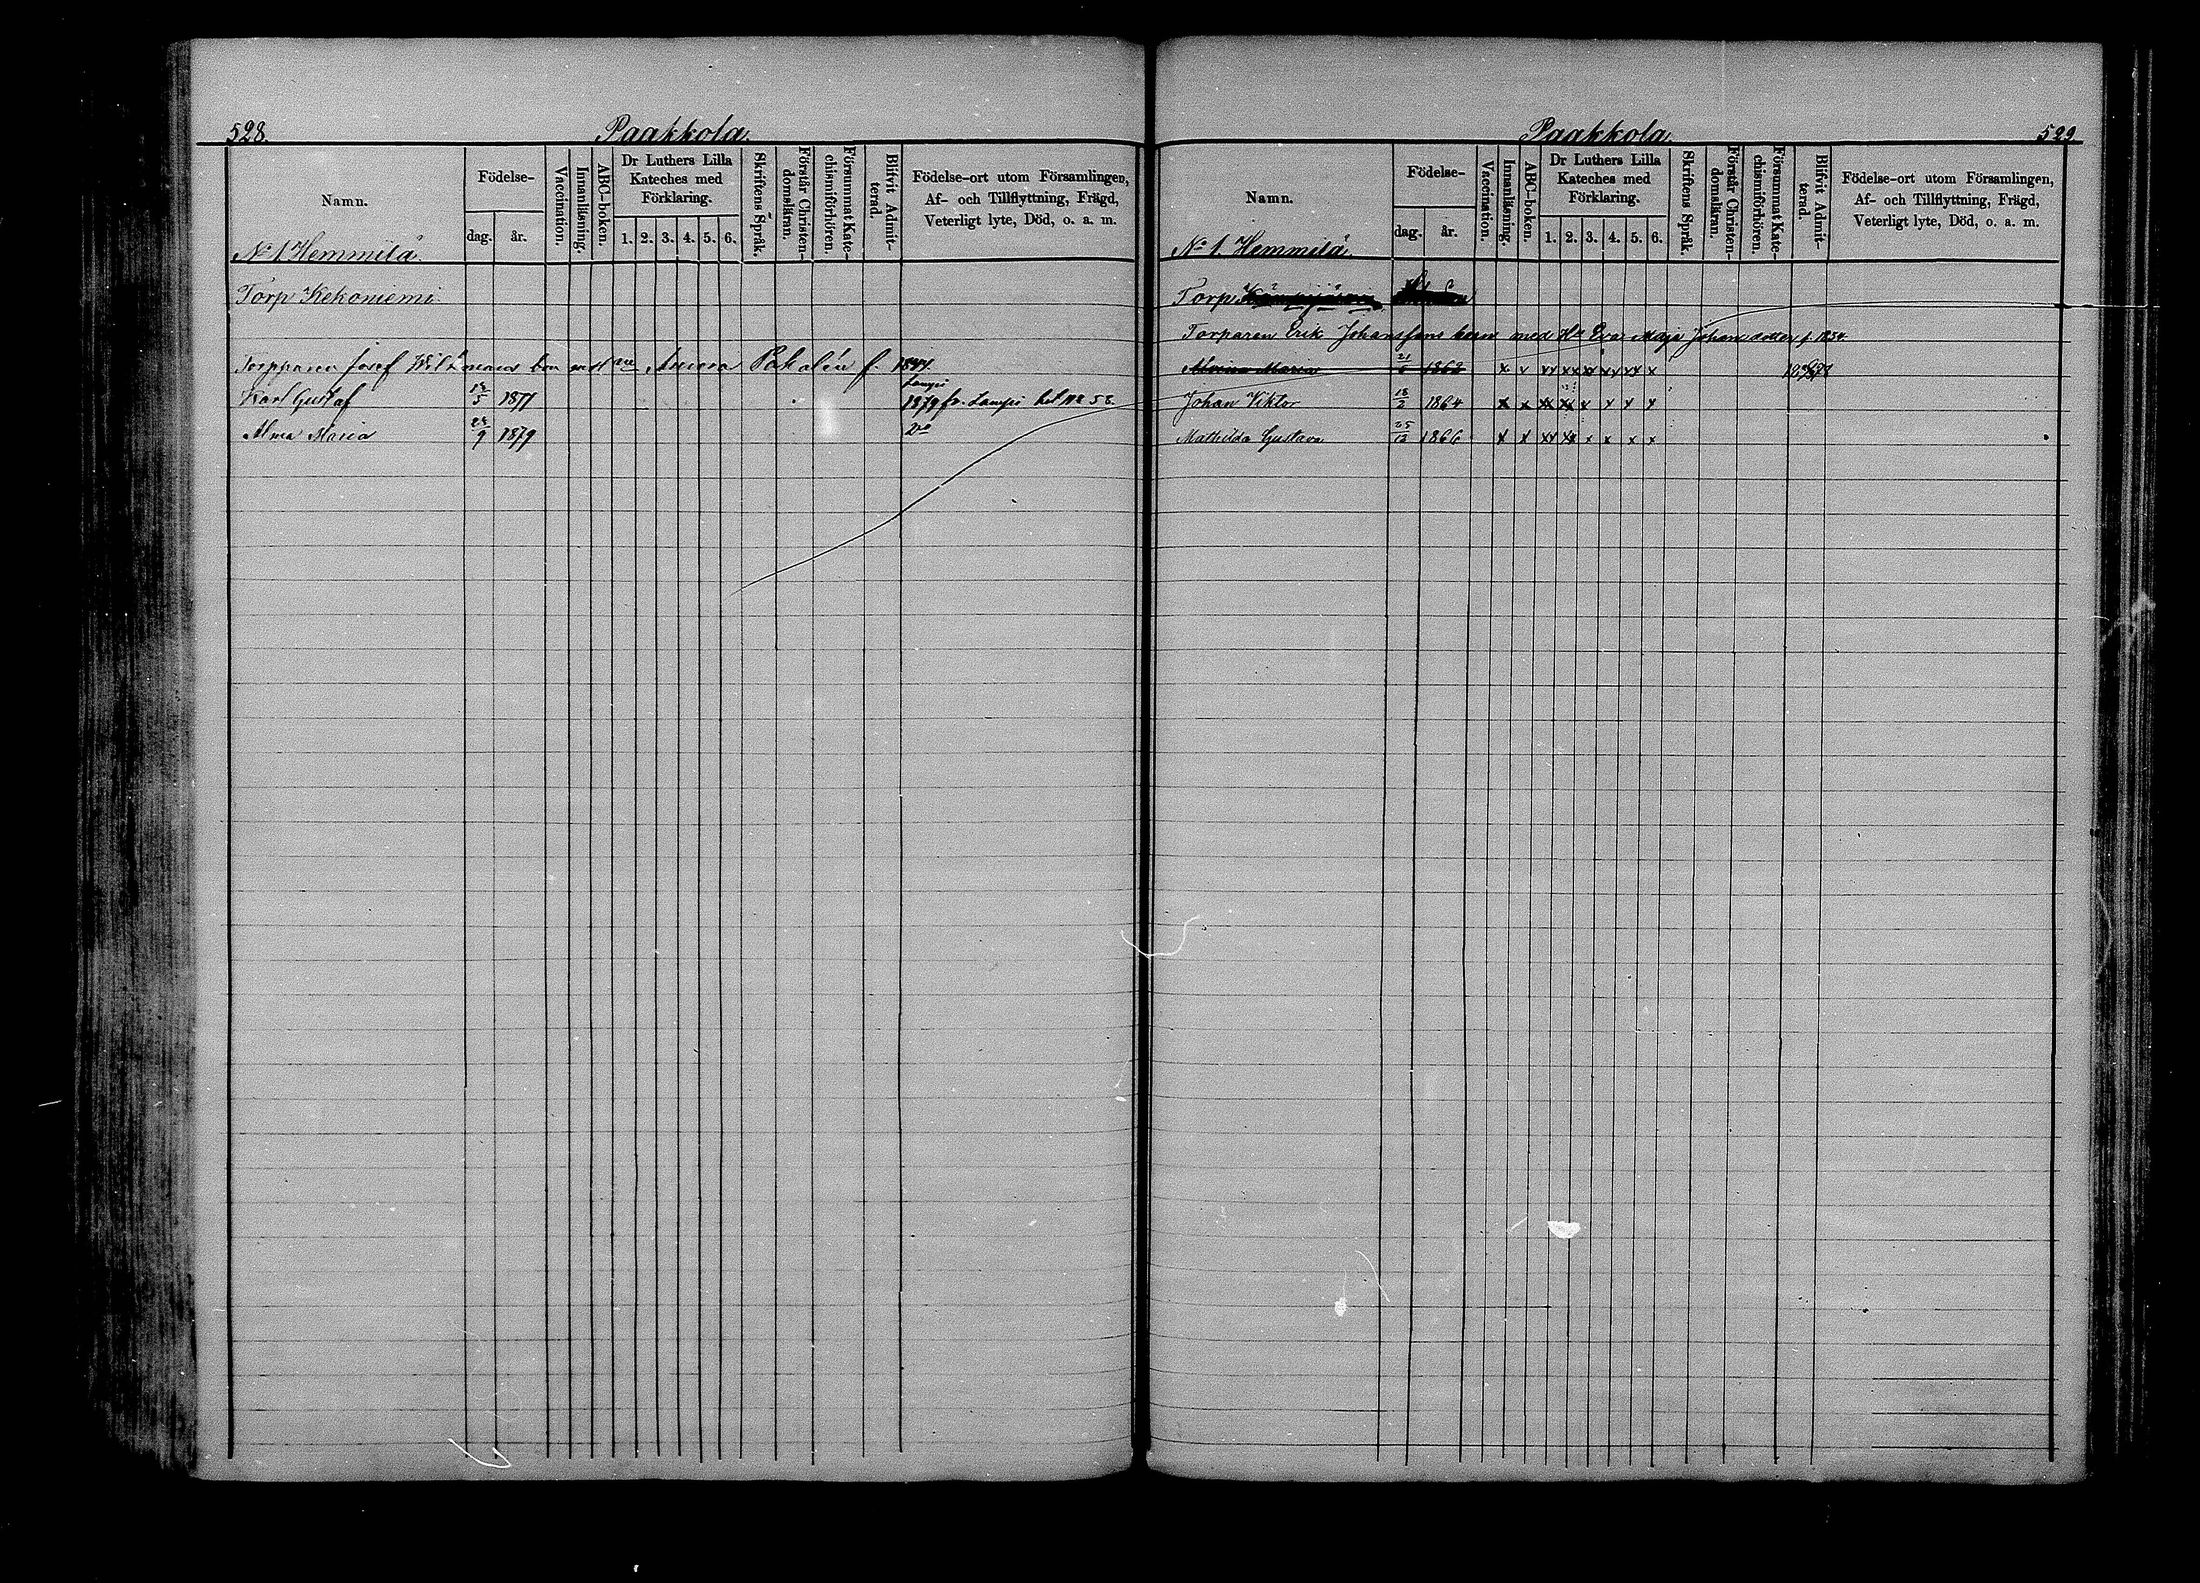 528.
Paakkola.
Namn.
Födelse-
dag.
år.
Vaccination.
Innanläsning.
ABC-boken.
Dr Luthers Lilla
Kateches med
Förklaring.
1. 2. 3. 4. 5. 6.
Skriftens Språk.
Förstår Christen-
domsläran.
Försummat Kate-
chismiförhören.
Blifvit Admit-
terad.
Födelse-ort utom Församlingen,
Af- och Tillflyttning, Frägd,
Veterligt lyte, Död, o. a. m.
No 1 Hemmilä.
Torp Kekoniemi
Torpparen Josef Wilhelm f. 1844.
Karl Gustaf 1877 1879 fr. Lampi bet No 58
Alma Maria 9 1879 Do
Paakkola.
529.
Namn.
Födelse-
dag.
år.
Vaccination.
Innanläsning.
ABC-boken.
Dr Luthers Lilla
Kateches med
Förklaring.
1. 2. 3. 4. 5. 6.
Skriftens Språk.
Förstår Christen-
domsläran.
Försummat Kate-
chismiförhören.
Blifvit Admit-
terad.
Födelse-ort utom Församlingen,
Af- och Tillflyttning, Frägd,
Veterligt lyte, Död, o. a. m.
No 1. Hemmilä
Torp
Torparen Erik Johanssons barn med Hu Eva Maja Johansdotter f. 1834
Maria 21 1862 x x xx xx xx xx xx x
Johan Viktor 18/2 1864 x x xx xx x x x x
Mathilda Gustava 25/12 1866 x x xx xx x x x x